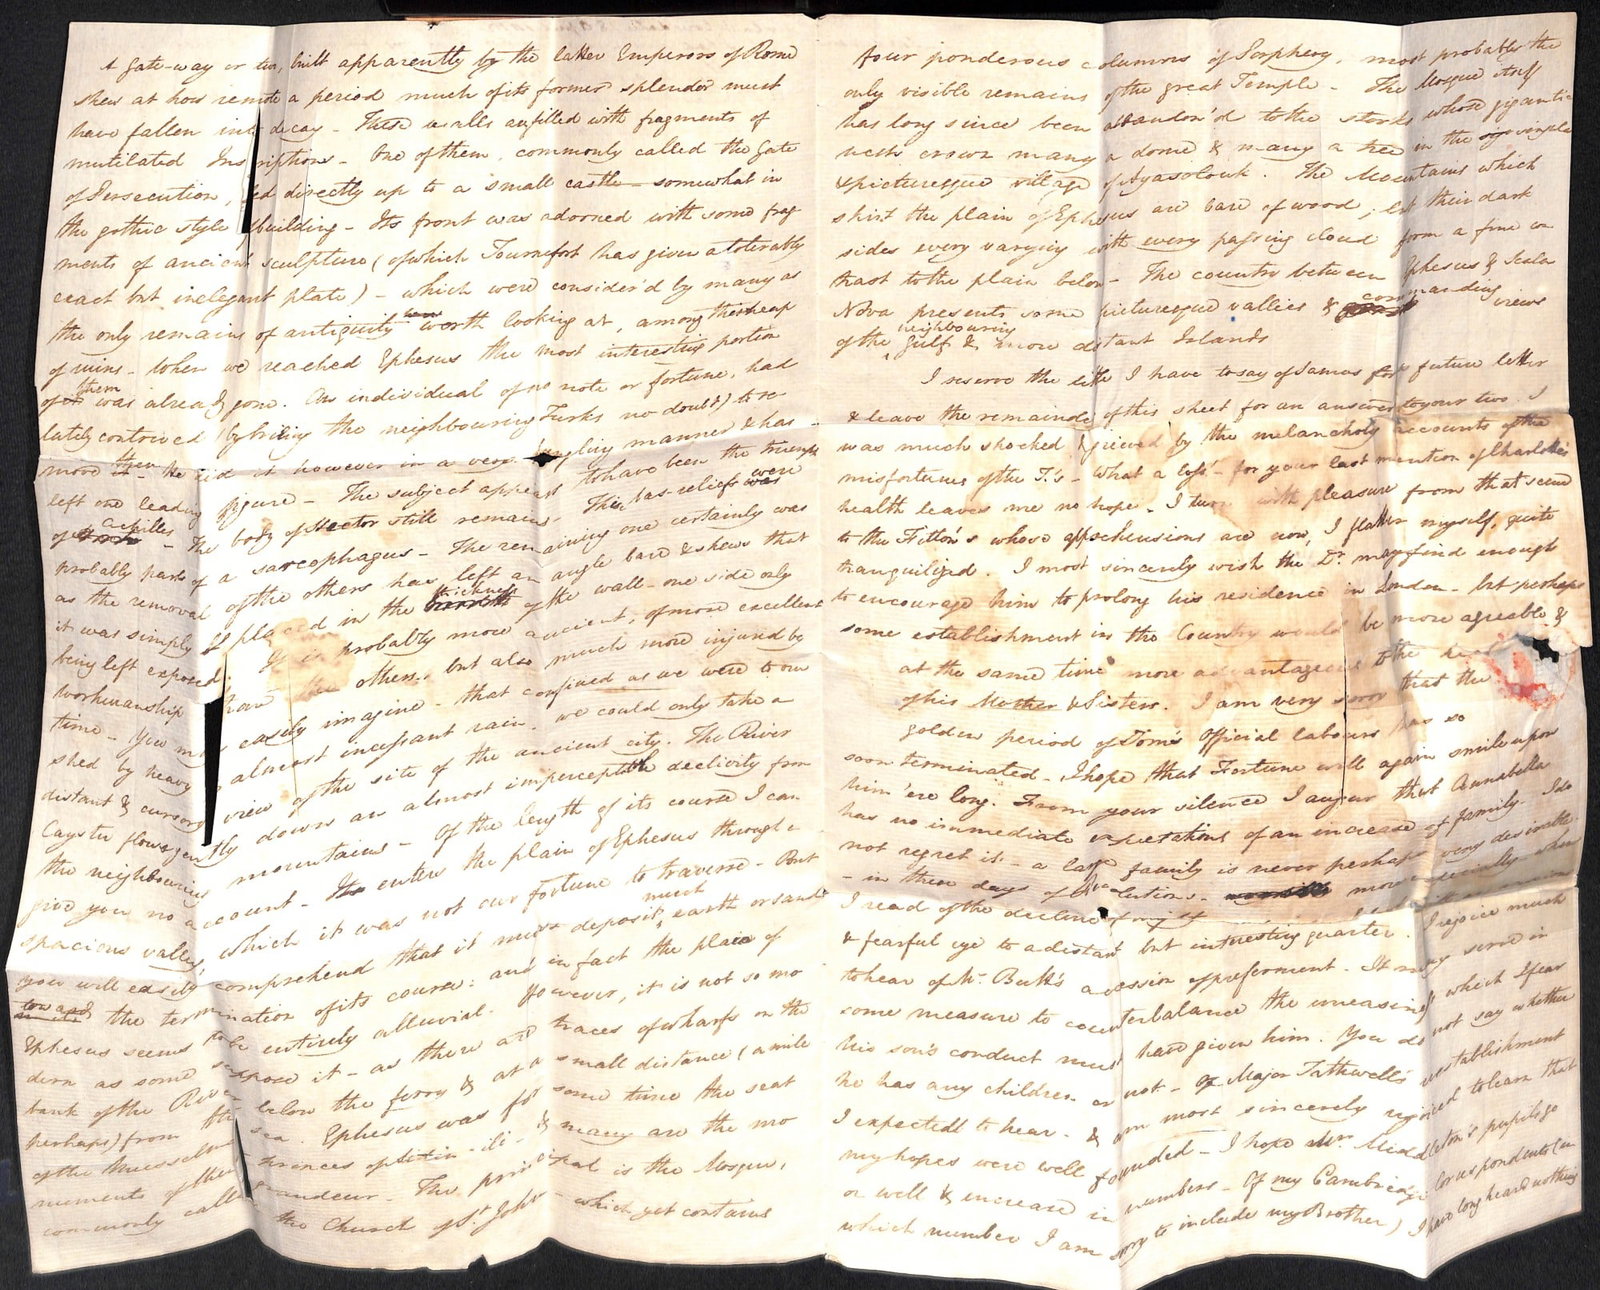 A Gate-way or two, built apparently by the latter Emperors of Rome
shew at how remote a period much of its former splendor must
have fallen into decay - These walls are filled with fragments of
mutilated Inscriptions - One of them, commonly called the Gate
of Persecution, led directly up to a small castle somewhat in
the gothic style of building - Its front was adorned with some frag
ments of ancient sculpture (of which Tournefort has given a tolerably
exact but inelegant plate) - which were consider'd by many as
the only remains of antiquity here worth looking at, among this heap
of ruins - When we reached Ephesus the most interesting portion
of them was already gone. An individual of no note or fortune, had
lately contrived (by bribing the neighbouring Turks no doubt) to re-
move them - He did it however in a very bungling manner & has
left one leading figure - The subject appears to have been the triumph
of Achilles - The body of Hector still remains. These bas-reliefs were
probably parts of a sarcophagus - The remaining one certainly was
as the removal of the others has left an angle bare & shews that
it was simply placed in the thickness of the wall - one side only
being left exposed. It is probably more ancient, of more excellent
workmanship than the others, but also much more injured by
time - You may easily imagine - that confined as we were to our
shed by heavy & almost incessant rain. we could only take a
distant & cursory view of the site of the ancient city. The River
Cayster flows gently down an almost imperceptible declivity from
the neighbouring mountains - Of the length of its course I can
give you no account - It enters the plain of Ephesus through a
spacious valley which it was not our fortune to traverse - But
you will easily comprehend that it must deposit much earth or sand
towards the termination of its course: and in fact the plain of
Ephesus seems to be entirely alluvial. However, it is not so mo
dern as some suppose it - as there are traces of wharfs on the
bank of the River below the ferry & at a small distance (a mile
perhaps) from the sea. Ephesus was for some time the seat
of the Musselman Princes of & many are the mo
numents of their grandeur - The principal is the Mosque,
commonly called the Church of St. John - which yet contains
four ponderous columns of Porphery, most probably the
only visible remains of the great Temple - The Mosque itself
has long since been abandon'd to the storks whose gigantic
nests crown many a dome & many a tree in the simple
& picturesque village of Ayasolouk. The Mountains which
skirt the plain of Ephesus are bare of wood; but their dark
sides every varying with every passing cloud form a fine con
trast to the plain below - The country between Ephesus & Scala
Nova presents some picturesque vallies & commanding views
of the neighbouring Gulf & more distant Islands
I reserve the little I have to say of Samos for a future letter
& leave the remainder of this sheet for an answer to your two. I
was much shocked & grieved by the melancholy accounts of the
misfortunes of the T.'s - What a loss! - for your last mention of Charlotte's
health leaves me no hope - I turn with pleasure from that scene
to the Fitton's whose apprehensions are now, I flatter myself, quite
tranquilized. I most sincerely wish the Dr. may find enough
to encourage him to prolong his residence in London - but perhaps
some establishment in the Country would be more agreeable &
at the same time more advantageous to the
of his Mother & Sisters. I am very sorry that the
golden period of Tom's Official labours has so
soon terminated - I hope that Fortune will again smile upon
him 'ere long. From your silence I augur that Annabella
has no immediate expectations of an increase of family. I do
not regret it - a large family is never perhaps very desirable
- in these days of Revolutions - more especially when
I read of the decline of my
& fearful eye to a distant but interesting quarter. I rejoice much
to hear of Mr. Butt's accession of preferment. It may serve in
some measure to counterbalance the uneasiness which I fear
his son's conduct must have given him. You do not say whether
he has any children or not - Of Major Tathwell's establishment
I expected to hear. & am most sincerely rejoiced to learn that
my hopes were well founded - I hope Mr. Middleton's pupils go
on well & increase in numbers - Of my Cambridge Correspondents (in
which number I am sorry to include my Brother) I have long heard nothing